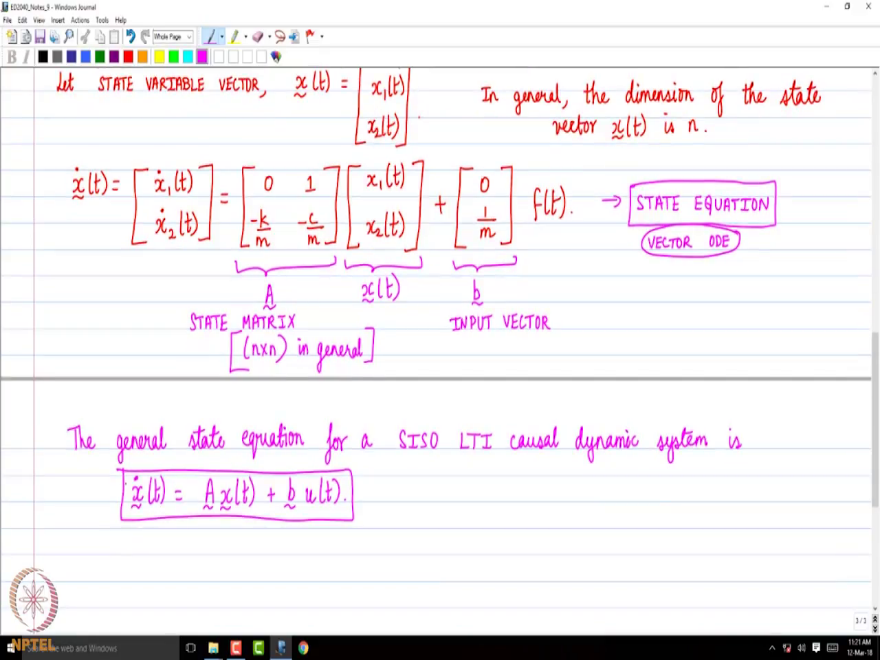 ED2040_Notes_9 - Windows Journal
File Edit View Insert Actions Tools Help
Whole Page
B I
Let STATE VARIABLE VECTOR, x(t) = [x₁(t) x₂(t)]
In general, the dimension of the state
vector x(t) is n.
ẋ(t) = [ẋ₁(t) ẋ₂(t)] = [0 1 -k/m -c/m] [x₁(t) x₂(t)] + [0 1/m] f(t). → STATE EQUATION
VECTOR ODE
A x(t) b
STATE MATRIX INPUT VECTOR
[(n×n) in general]
The general state equation for a SISO LTI causal dynamic system is
ẋ(t) = A x(t) + b u(t).
3 / 3
NPTEL
web and Windows
11:21 AM
12-Mar-18